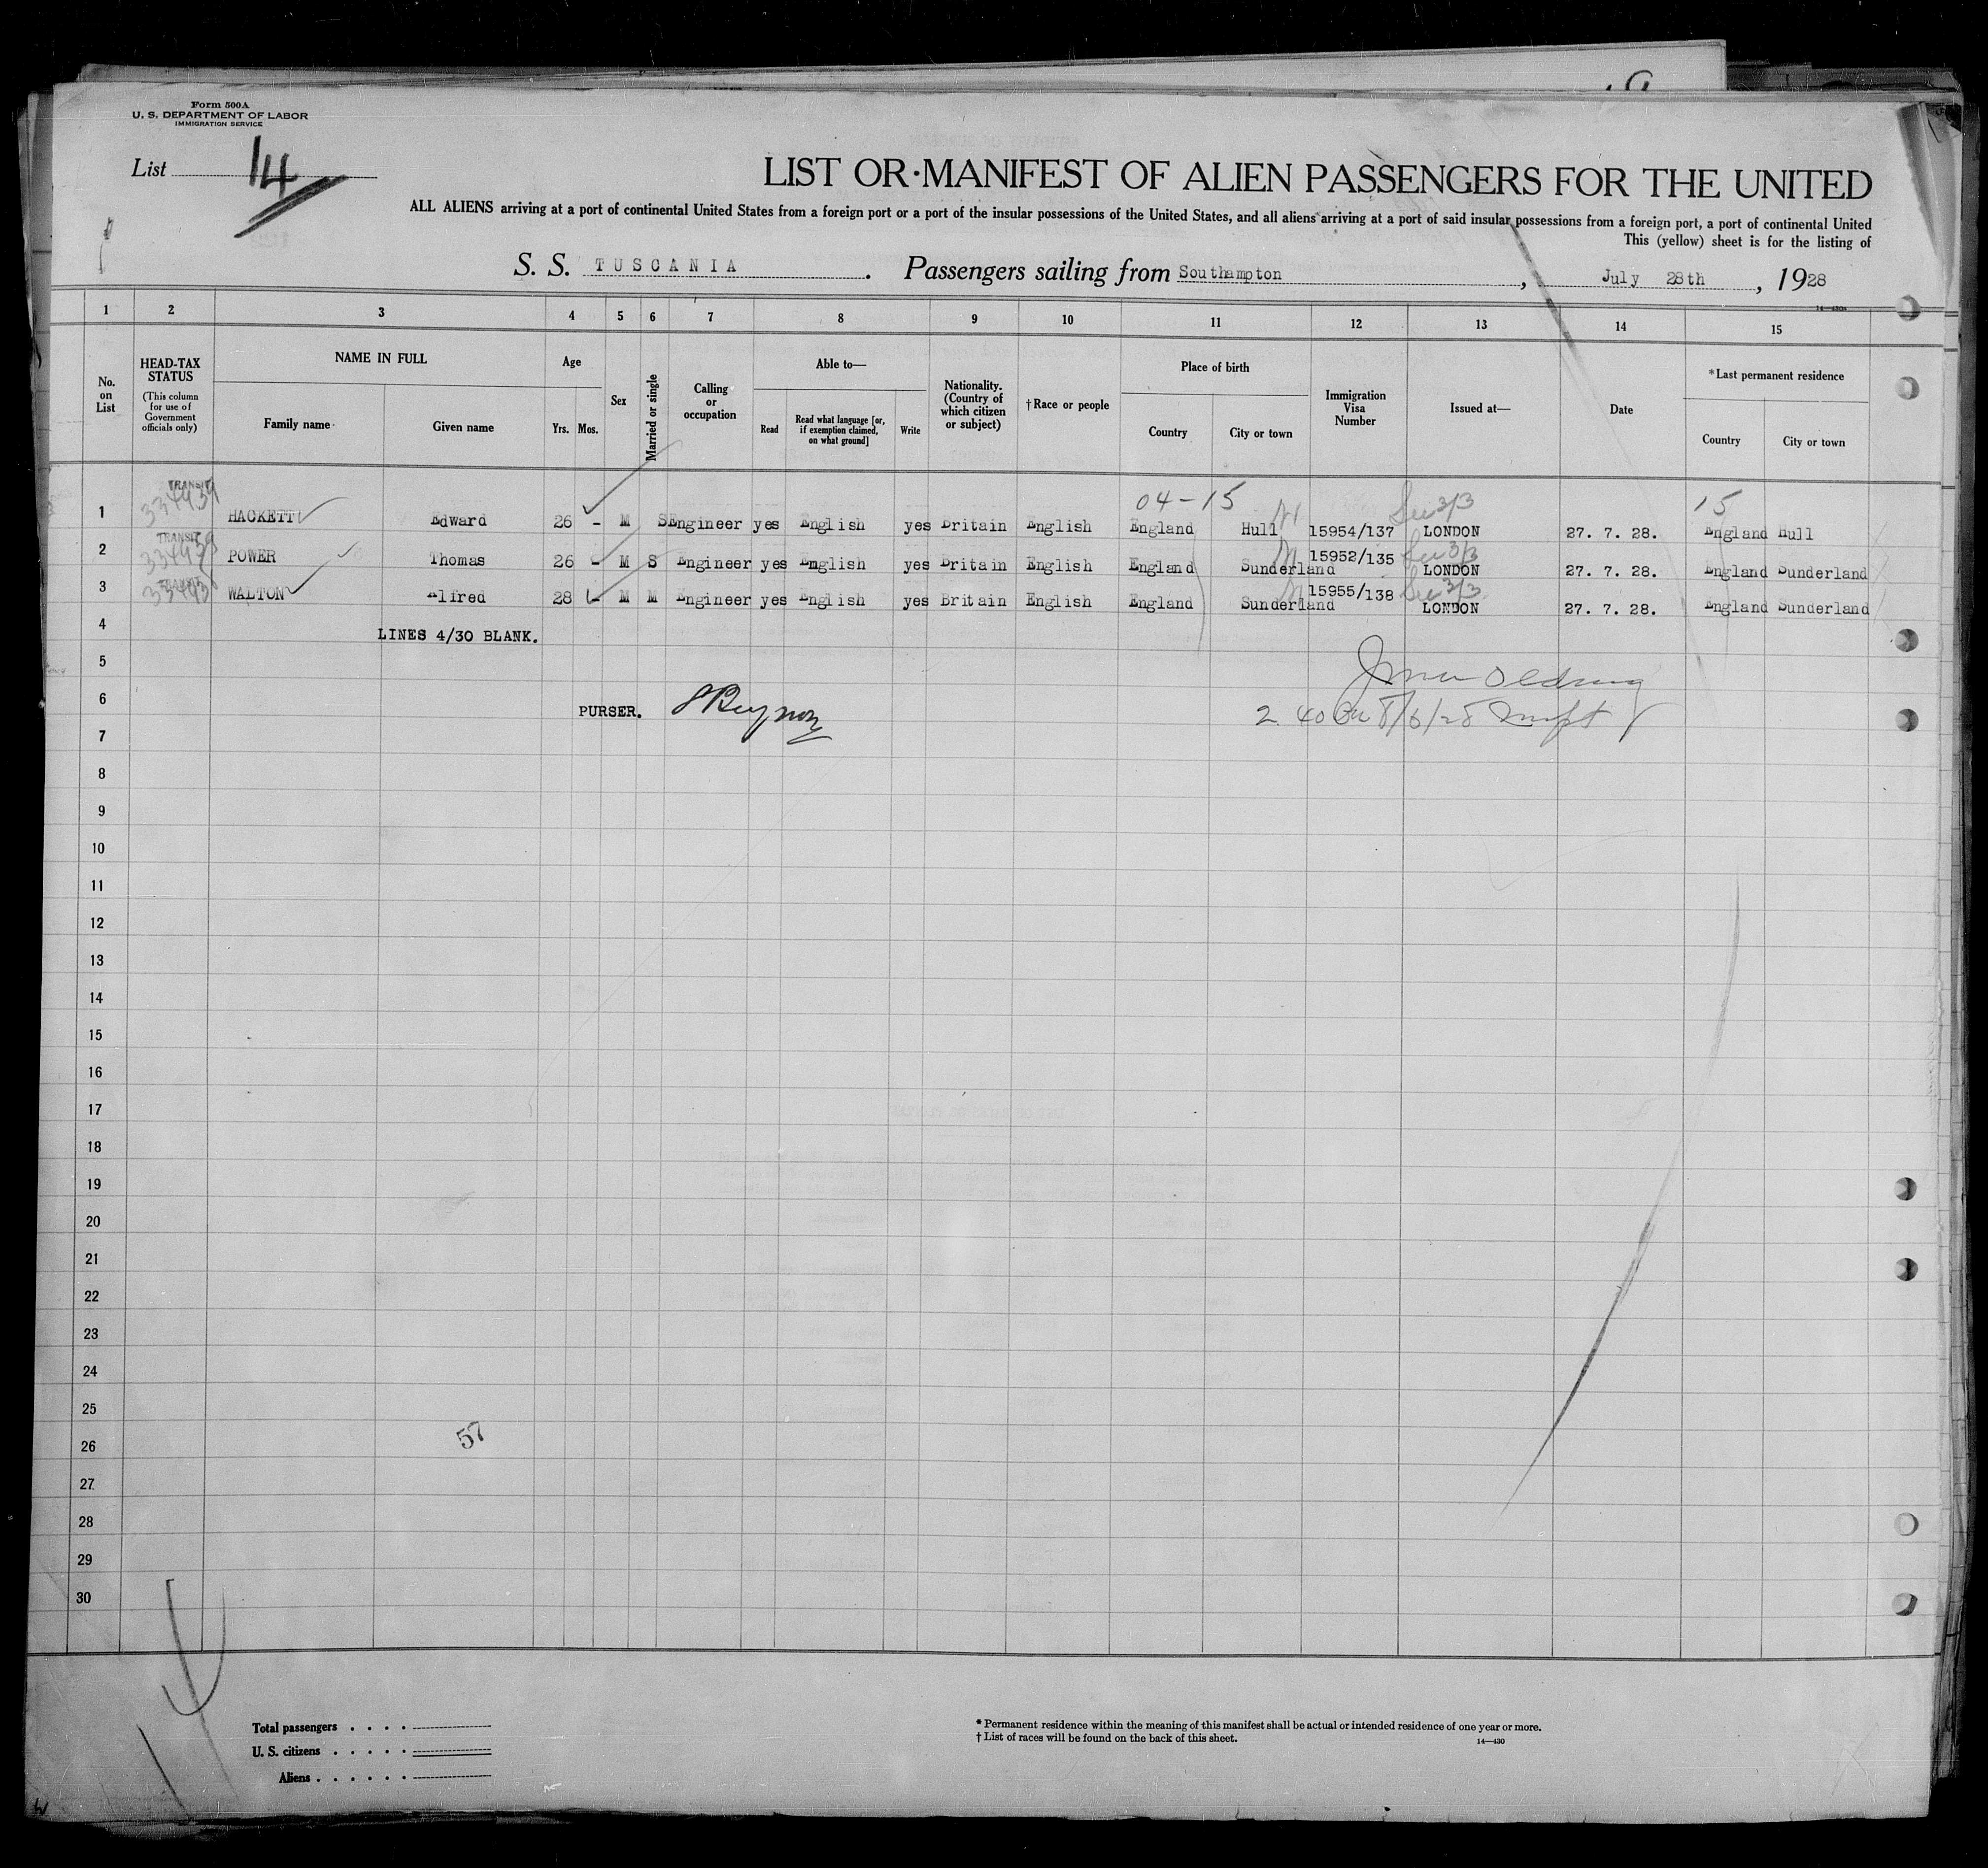 Form 500A
U. S. DEPARTMENT OF LABOR
IMMIGRATION SERVICE
List 14
LIST OR MANIFEST OF ALIEN PASSENGERS FOR THE UNITED
ALL ALIENS arriving at a port of continental United States from a foreign port or a port of the insular possessions of the United States, and all aliens arriving at a port of said insular possessions from a foreign port, a port of continental United
This (yellow) sheet is for the listing of
S. S. TUSCANIA. Passengers sailing from Southampton, July 28th, 1928
1 2 3 4 5 6 7 8 9 10 11 12 13 14 15
No. on List
HEAD-TAX STATUS
(This column for use of Government officials only)
NAME IN FULL
Family name
Given name
Age
Yrs. Mos.
Sex
Married or single
Calling or occupation
Able to—
Read
Read what language [or, if exemption claimed, on what ground]
Write
Nationality. (Country of which citizen or subject)
†Race or people
Place of birth
Country
City or town
Immigration Visa Number
Issued at—
Date
*Last permanent residence
Country
City or town
04-15 15
1 TRANSIT HACKETT Edward 26 - M S Engineer yes English yes Britain English England Hull 15954/137 LONDON 27. 7. 28. England Hull
2 TRANSIT POWER Thomas 26 - M S Engineer yes English yes Britain English England Sunderland 15952/135 LONDON 27. 7. 28. England Sunderland
3 TRANSIT WALTON Alfred 28 - M M Engineer yes English yes Britain English England Sunderland 15955/138 LONDON 27. 7. 28. England Sunderland
4 LINES 4/30 BLANK.
5
6 PURSER.
7
8
9
10
11
12
13
14
15
16
17
18
19
20
21
22
23
24
25
57
26
27
28
29
30
Total passengers . . . .
U. S. citizens . . . . .
Aliens . . . . . .
* Permanent residence within the meaning of this manifest shall be actual or intended residence of one year or more.
† List of races will be found on the back of this sheet.
14—430